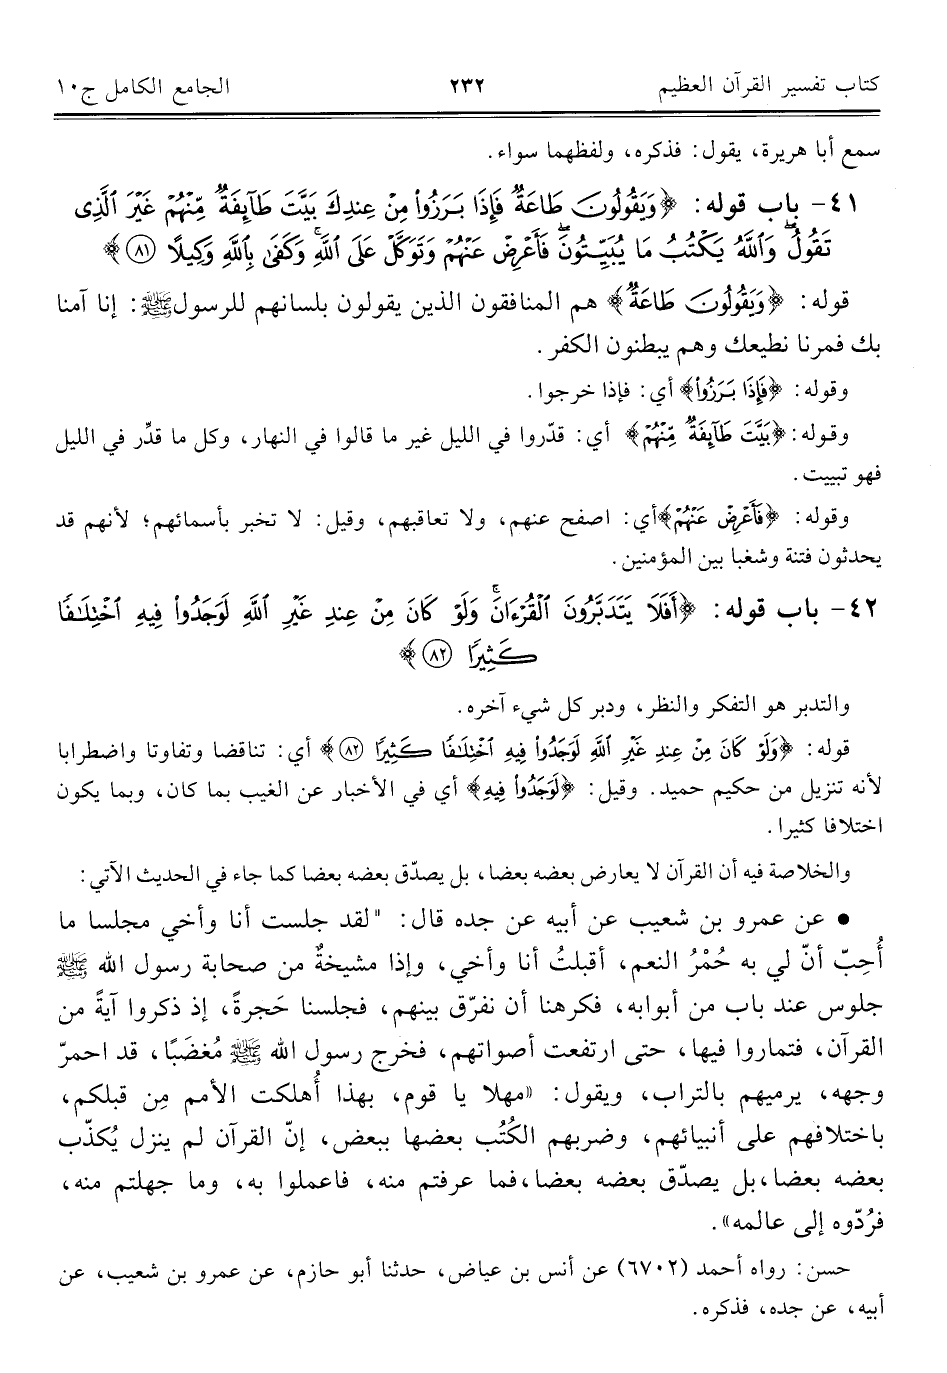 كتاب تفسير القرآن العظيم ٢٣٢ الجامع الكامل ج١٠
سمع أبا هريرة، يقول: فذكره، ولفظهما سواء.
٤١- باب قوله: ﴿وَيَقُولُونَ طَاعَةٌ فَإِذَا بَرَزُواْ مِنْ عِندِكَ بَيَّتَ طَآئِفَةٌ مِّنْهُمْ غَيْرَ ٱلَّذِى
تَقُولُ وَٱللَّهُ يَكْتُبُ مَا يُبَيِّتُونَ فَأَعْرِضْ عَنْهُمْ وَتَوَكَّلْ عَلَى ٱللَّهِ وَكَفَىٰ بِٱللَّهِ وَكِيلًا ٨١﴾
قوله: ﴿وَيَقُولُونَ طَاعَةٌ﴾ هم المنافقون الذين يقولون بلسانهم للرسول ﷺ: إنا آمنا
بك فمرنا نطيعك وهم يبطنون الكفر.
وقوله: ﴿فَإِذَا بَرَزُواْ﴾ أي: فإذا خرجوا.
وقوله: ﴿بَيَّتَ طَآئِفَةٌ مِّنْهُمْ﴾ أي: قدّروا في الليل غير ما قالوا في النهار، وكل ما قدِّر في الليل
فهو تبييت.
وقوله: ﴿فَأَعْرِضْ عَنْهُمْ﴾أي: اصفح عنهم، ولا تعاقبهم، وقيل: لا تخبر بأسمائهم؛ لأنهم قد
يحدثون فتنة وشغبا بين المؤمنين.
٤٢- باب قوله: ﴿أَفَلَا يَتَدَبَّرُونَ ٱلْقُرْءَانَ وَلَوْ كَانَ مِنْ عِندِ غَيْرِ ٱللَّهِ لَوَجَدُواْ فِيهِ ٱخْتِلَٰفًا
كَثِيرًا ٨٢﴾
والتدبر هو التفكر والنظر، ودبر كل شيء آخره.
قوله: ﴿وَلَوْ كَانَ مِنْ عِندِ غَيْرِ ٱللَّهِ لَوَجَدُواْ فِيهِ ٱخْتِلَٰفًا كَثِيرًا ٨٢﴾ أي: تناقضا وتفاوتا واضطرابا
لأنه تنزيل من حكيم حميد. وقيل: ﴿لَوَجَدُواْ فِيهِ﴾ أي في الأخبار عن الغيب بما كان، وبما يكون
اختلافا كثيرا.
والخلاصة فيه أن القرآن لا يعارض بعضه بعضا، بل يصدّق بعضه بعضا كما جاء في الحديث الآتي:
• عن عمرو بن شعيب عن أبيه عن جده قال: "لقد جلست أنا وأخي مجلسا ما
أُحِبّ أنّ لي به حُمْرُ النعم، أقبلتُ أنا وأخي، وإذا مشيخةٌ من صحابة رسول الله ﷺ
جلوس عند باب من أبوابه، فكرهنا أن نفرّق بينهم، فجلسنا حَجرةً، إذ ذكروا آيةً من
القرآن، فتماروا فيها، حتى ارتفعت أصواتهم، فخرج رسول الله ﷺ مُغضَبًا، قد احمرّ
وجهه، يرميهم بالتراب، ويقول: «مهلا يا قوم، بهذا أُهلكت الأمم مِن قبلكم،
باختلافهم على أنبيائهم، وضربهم الكُتُب بعضها ببعض، إنّ القرآن لم ينزل يُكذّب
بعضه بعضا،بل يصدّق بعضه بعضا،فما عرفتم منه، فاعملوا به، وما جهلتم منه،
فرُدّوه إلى عالمه».
حسن: رواه أحمد (٦٧٠٢) عن أنس بن عياض، حدثنا أبو حازم، عن عمرو بن شعيب، عن
أبيه، عن جده، فذكره.